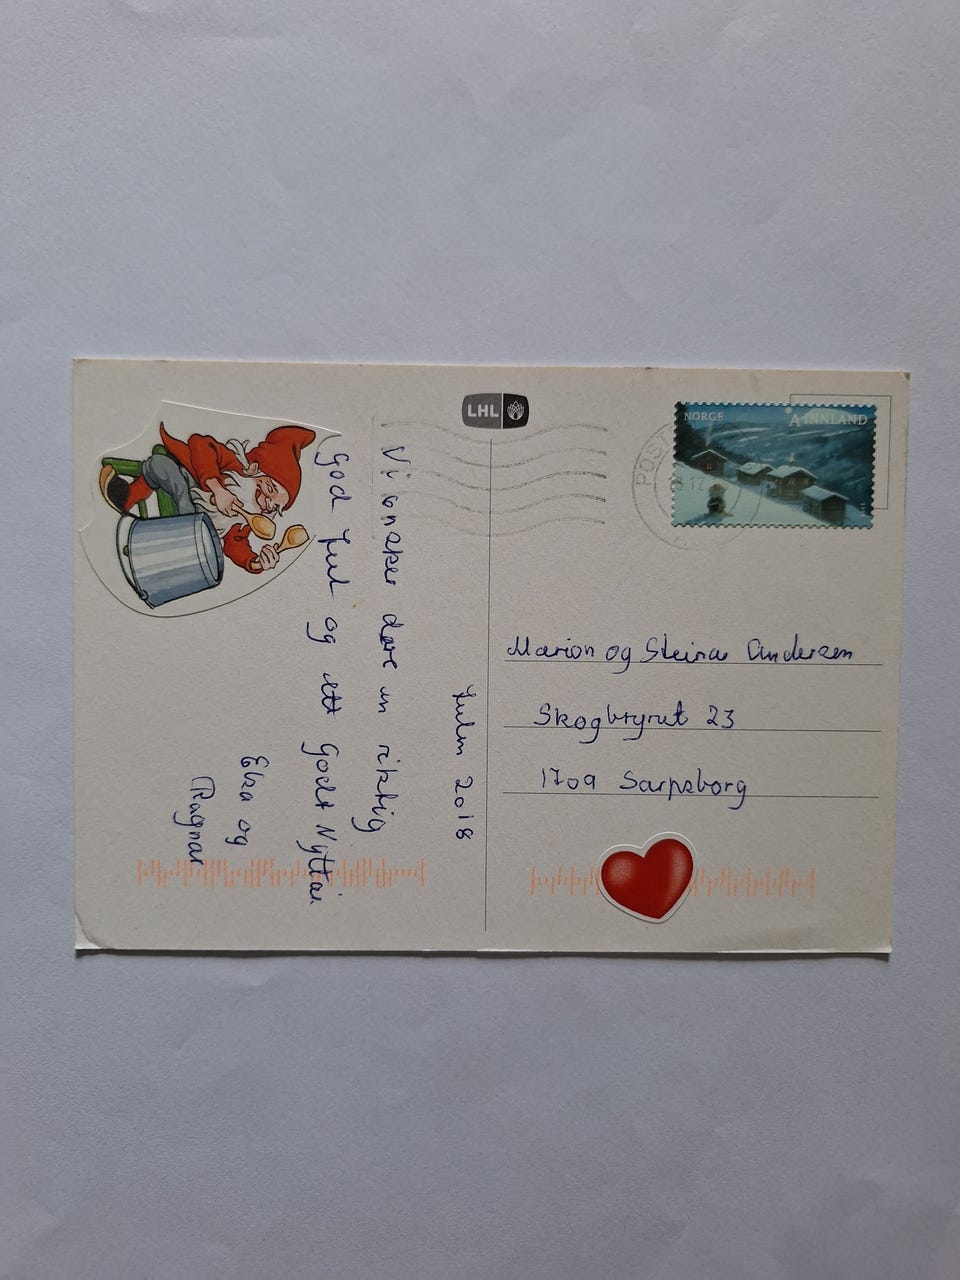 LHL
NORGE
A INNLAND
POST
Julen 2018
Vi ønsker dere en riktig
God Jul og ett Godt Nyttår
Elsa og
Ragnar
Marion og Steinar Andersen
Skogbrynet 23
1709 Sarpsborg